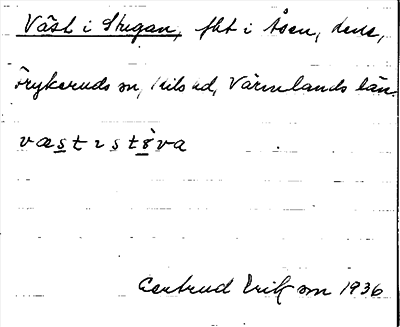 Väst i Stugan, fht i Åsen, dens,
Frykeruds sn, Kils hd, Värmlands län.
væstɩstö̀va
Gertrud Erikson 1936